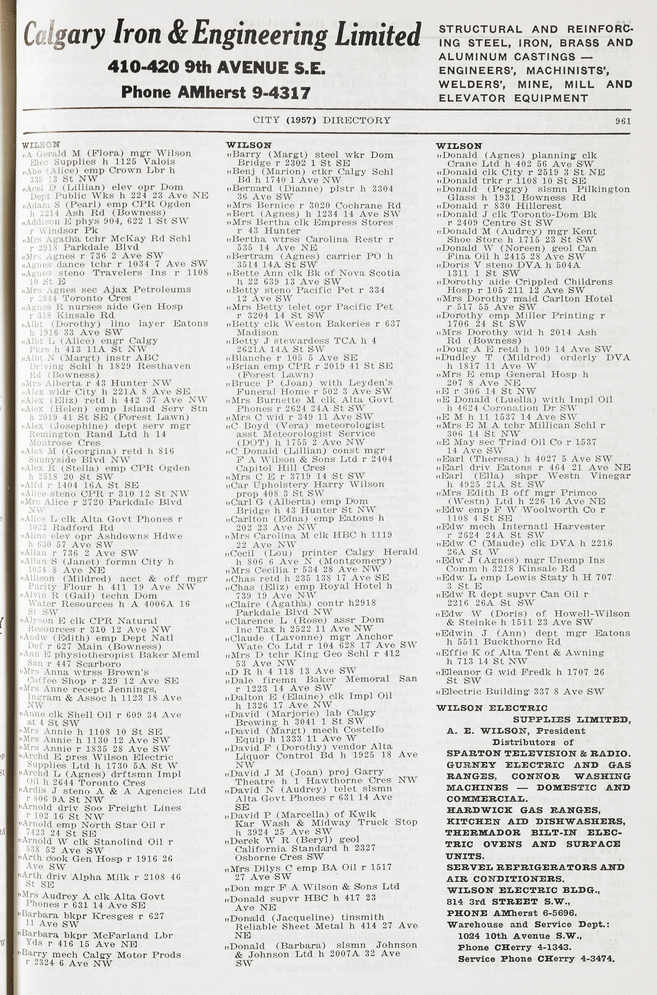 Calgary Iron & Engineering Limited
410-420 9th AVENUE S.E.
Phone AMherst 9-4317
STRUCTURAL AND REINFORC-
ING STEEL, IRON, BRASS AND
ALUMINUM CASTINGS —
ENGINEERS', MACHINISTS',
WELDERS', MINE, MILL AND
ELEVATOR EQUIPMENT
CITY (1957) DIRECTORY 961
WILSON
„A Gerald M (Flora) mgr Wilson
Elec Supplies h 1125 Valois
„Abe (Alice) emp Crown Lbr h
339 13 St NW
„Acel D (Lillian) elev opr Dom
Dept Public Wks h 224 23 Ave NE
„Adam S (Pearl) emp CPR Ogden
h 2214 Ash Rd (Bowness)
„Addison E phys 904, 622 1 St SW
r Windsor Pk
„Mrs Agatha tchr McKay Rd Schl
r 2918 Parkdale Blvd
„Mrs Agnes r 736 2 Ave SW
„Agnes dance tchr r 1034 7 Ave SW
„Agnes steno Travelers Ins r 1108
10 St E
„Mrs Agnes sec Ajax Petroleums
r 2644 Toronto Cres
„Agnes R nurses aide Gen Hosp
r 318 Kinsale Rd
„Albt (Dorothy) lino layer Eatons
h 1916 33 Ave SW
„Albt L (Alice) engr Calgy
Pkrs h 413 11A St NW
„Albt N (Margt) instr ABC
Driving Schl h 1829 Resthaven
Rd (Bowness)
„Mrs Alberta r 43 Hunter NW
„Alex wldr City h 221A 8 Ave SE
„Alex (Eliz) retd h 442 37 Ave NW
„Alex (Helen) emp Island Serv Stn
h 2019 41 St SE (Forest Lawn)
„Alex (Josephine) dept serv mgr
Remington Rand Ltd h 14
Montrose Cres
„Alex M (Georgina) retd h 816
Sunnyside Blvd NW
„Alex R (Stella) emp CPR Ogden
h 2518 20 St SW
„Alfd r 1404 16A St SE
„Alice steno CPR r 310 12 St NW
„Mrs Alice r 2720 Parkdale Blvd
NW
„Alice L clk Alta Govt Phones r
1022 Radford Rd
„Aline elev opr Ashdowns Hdwe
h 630 57 Ave SW
„Allan r 736 2 Ave SW
„Allan S (Janet) formn City h
1934 8 Ave NE
„Allison (Mildred) acct & off mgr
Purity Flour h 411 19 Ave NW
„Alvin R (Gail) techn Dom
Water Resources h A 4006A 16
St SW
„Alyson E clk CPR Natural
Resources r 310 12 Ave NW
„Andw (Edith) emp Dept Natl
Def r 627 Main (Bowness)
„Ann E physiotherapist Baker Meml
San r 447 Scarboro
„Mrs Anna wtrss Brown's
Coffee Shop r 329 12 Ave SE
„Mrs Anne recept Jennings,
Ingram & Assoc h 1123 18 Ave
NW
„Anne clk Shell Oil r 609 34 Ave
at 4 St SW
„Mrs Annie h 1108 10 St SE
„Mrs Annie h 1130 12 Ave SW
„Mrs Annie r 1835 28 Ave SW
„Archd E pres Wilson Electric
Supplies Ltd h 1730 5A St W
„Archd L (Agnes) drftsmn Impl
Oil h 2644 Toronto Cres
„Ardis J steno A & A Agencies Ltd
r 806 9A St NW
„Arnold driv Soo Freight Lines
r 102 16 St NW
„Arnold emp North Star Oil r
7423 24 St SE
„Arnold W clk Stanolind Oil r
538 52 Ave SW
„Arth cook Gen Hosp r 1916 26
Ave SW
„Arth driv Alpha Milk r 2108 46
St SE
„Mrs Audrey A clk Alta Govt
Phones r 631 14 Ave SE
„Barbara bkpr Kresges r 627
11 Ave SW
„Barbara bkpr McFarland Lbr
Yds r 416 15 Ave NE
„Barry mech Calgy Motor Prods
r 2324 6 Ave NW
WILSON
„Barry (Margt) steel wkr Dom
Bridge r 2302 1 St SE
„Benj (Marion) ctkr Calgy Schl
Bd h 1740 1 Ave NW
„Bernard (Dianne) plstr h 3304
36 Ave SW
„Mrs Bernice r 3020 Cochrane Rd
„Bert (Agnes) h 1234 14 Ave SW
„Mrs Bertha clk Empress Stores
r 43 Hunter
„Bertha wtrss Carolina Restr r
535 14 Ave NE
„Bertram (Agnes) carrier PO h
3514 14A St SW
„Bette Ann clk Bk of Nova Scotia
h 22 639 13 Ave SW
„Betty steno Pacific Pet r 334
12 Ave SW
„Mrs Betty telet opr Pacific Pet
r 3204 14 St SW
„Betty clk Weston Bakeries r 637
Madison
„Betty J stewardess TCA h 4
2621A 14A St SW
„Blanche r 105 5 Ave SE
„Brian emp CPR r 2019 41 St SE
(Forest Lawn)
„Bruce P (Joan) with Leyden's
Funeral Home r 502 3 Ave SW
„Mrs Burnette M clk Alta Govt
Phones r 2624 24A St SW
„Mrs C wid r 349 11 Ave SW
„C Boyd (Vera) meteorologist
asst Meteorologist Service
(DOT) h 1755 2 Ave NW
„C Donald (Lillian) const mgr
F A Wilson & Sons Ltd r 2404
Capitol Hill Cres
„Mrs C E r 3719 14 St SW
„Car Upholstery Harry Wilson
prop 408 3 St SW
„Carl G (Alberta) emp Dom
Bridge h 43 Hunter St NW
„Carlton (Edna) emp Eatons h
202 23 Ave NW
„Mrs Carolina M clk HBC h 1119
22 Ave NW
„Cecil (Lou) printer Calgy Herald
h 806 6 Ave N (Montgomery)
„Mrs Cecilia r 534 28 Ave NW
„Chas retd h 235 138 17 Ave SE
„Chas (Eliz) emp Royal Hotel h
739 19 Ave NW
„Claire (Agatha) contr h2918
Parkdale Blvd NW
„Clarence L (Rose) assr Dom
Inc Tax h 2522 11 Ave NW
„Claude (Lavonne) mgr Anchor
Wate Co Ltd r 104 628 17 Ave SW
„Mrs D tchr King Geo Schl r 412
53 Ave NW
„D R h 4 118 13 Ave SW
„Dale firemn Baker Memorial San
r 1223 14 Ave SW
„Dalton E (Elaine) clk Impl Oil
h 1326 17 Ave NW
„David (Marjorie) lab Calgy
Brewing h 3041 1 St SW
„David (Margt) mech Costello
Equip h 1333 11 Ave W
„David F (Dorothy) vendor Alta
Liquor Control Bd h 1925 18 Ave
NW
„David J M (Joan) proj Garry
Theatre h 1 Hawthorne Cres NW
„David N (Audrey) telet slsmn
Alta Govt Phones r 631 14 Ave
SE
„David P (Marcella) of Kwik
Kar Wash & Midway Truck Stop
h 3924 25 Ave SW
„Derek W R (Beryl) geol
California Standard h 2327
Osborne Cres SW
„Mrs Dilys C emp BA Oil r 1517
27 Ave SW
„Don mgr F A Wilson & Sons Ltd
„Donald supvr HBC h 417 23
Ave NE
„Donald (Jacqueline) tinsmith
Reliable Sheet Metal h 414 27 Ave
NE
„Donald (Barbara) slsmn Johnson
& Johnson Ltd h 2007A 32 Ave
SW
WILSON
„Donald (Agnes) planning clk
Crane Ltd h 402 56 Ave SW
„Donald clk City r 2519 3 St NE
„Donald trkr r 1108 10 St SE
„Donald (Peggy) slsmn Pilkington
Glass h 1931 Bowness Rd
„Donald r 830 Hillcrest
„Donald J clk Toronto-Dom Bk
r 2409 Centre St SW
„Donald M (Audrey) mgr Kent
Shoe Store h 1715 23 St SW
„Donald W (Noreen) geol Can
Fina Oil h 2415 28 Ave SW
„Doris V steno DVA h 504A
1311 1 St SW
„Dorothy aide Crippled Childrens
Hosp r 105 211 12 Ave SW
„Mrs Dorothy maid Carlton Hotel
r 517 55 Ave SW
„Dorothy emp Miller Printing r
1706 24 St SW
„Mrs Dorothy wid h 2014 Ash
Rd (Bowness)
„Doug A E retd h 109 14 Ave SW
„Dudley T (Mildred) orderly DVA
h 1817 11 Ave W
„Mrs E emp General Hosp h
207 8 Ave NE
„E r 306 14 St NW
„E Donald (Leatha) with Impl Oil
h 4624 Coronation Dr SW
„E M h 11 1537 14 Ave SW
„Mrs E M A tchr Millican Schl r
306 14 St NW
„E May sec Triad Oil Co r 1537
14 Ave SW
„Earl (Theresa) h 4027 5 Ave SW
„Earl driv Eatons r 464 21 Ave NE
„Earl (Ella) shpr Westn Vinegar
h 4925 21A St SW
„Mrs Edith B off mgr Primco
(Westn) Ltd h 226 16 Ave NE
„Edw emp F W Woolworth Co r
1108 4 St SE
„Edw mech Internatl Harvester
r 2624 24A St SW
„Edw C (Maude) clk DVA h 2216
26A St W
„Edw J (Agnes) mgr Unemp Ins
Comm h 3218 Kinsale Rd
„Edw L emp Lewis Staty h H 707
3 St E
„Edw R dept supvr Can Oil r
2216 26A St SW
„Edw W (Doris) of Howell-Wilson
& Steinke h 1511 23 Ave SW
„Edwin J (Ann) dept mgr Eatons
h 5511 Buckthorne Rd
„Effie K of Alta Tent & Awning
h 713 14 St NW
„Eleanor G wid Fredk h 1707 26
St SW
„Electric Building 337 8 Ave SW
WILSON ELECTRIC
SUPPLIES LIMITED,
A. E. WILSON, President
Distributors of
SPARTON TELEVISION & RADIO.
GURNEY ELECTRIC AND GAS
RANGES, CONNOR WASHING
MACHINES — DOMESTIC AND
COMMERCIAL.
HARDWICK GAS RANGES,
KITCHEN AID DISHWASHERS,
THERMADOR BILT-IN ELEC-
TRIC OVENS AND SURFACE
UNITS.
SERVEL REFRIGERATORS AND
AIR CONDITIONERS.
WILSON ELECTRIC BLDG.,
814 3rd STREET S.W.,
PHONE AMherst 6-5696.
Warehouse and Service Dept.:
1024 10th Avenue S.W.,
Phone CHerry 4-1343.
Service Phone CHerry 4-3474.